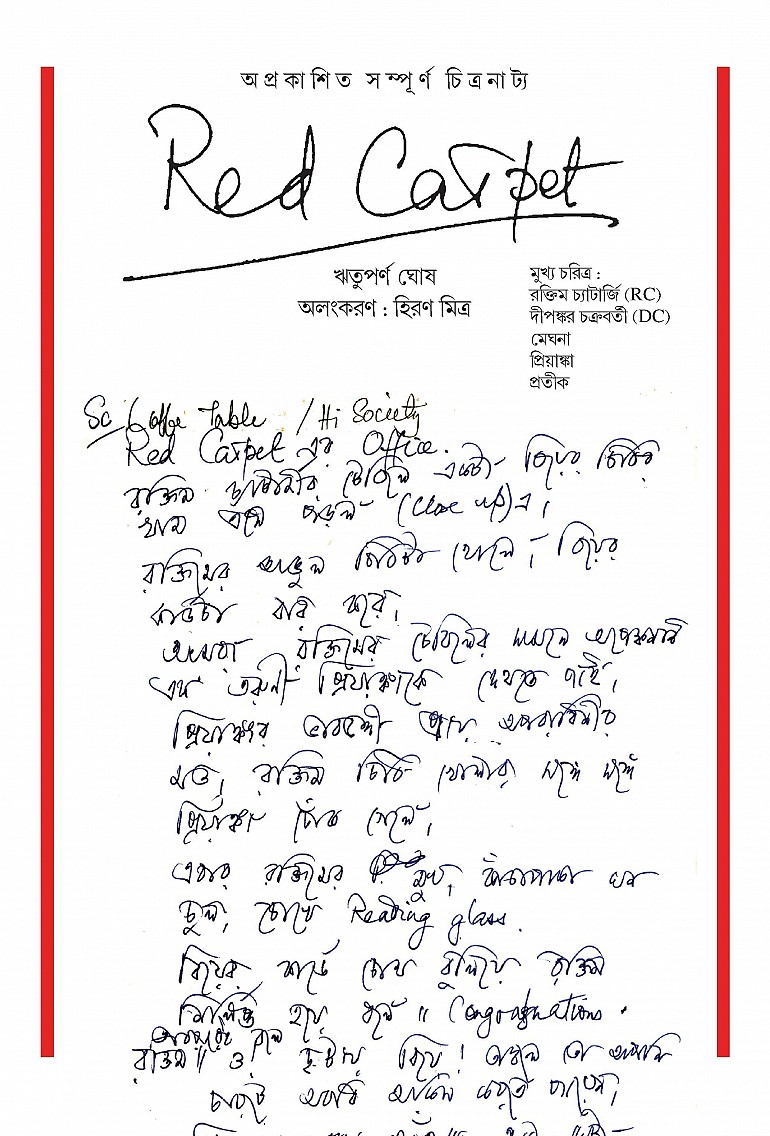 অপ্রকাশিত সম্পূর্ণ চিত্রনাট্য
Red Carpet
ঋতুপর্ণ ঘোষ
অলংকরণ : হিরণ মিত্র
মুখ্য চরিত্র :
রক্তিম চ্যাটার্জি (RC)
দীপঙ্কর চক্রবর্তী (DC)
মেঘনা
প্রিয়াঙ্কা
প্রতীক
Sc Coffee Table / Hi Society
Red Carpet এর Office.
রক্তিম চ্যাটার্জীর টেবিলে একটা বিয়ের চিঠির
খাম এসে পড়ল (Close up) এ।
রক্তিমের আঙুল চিঠিটা খোলে, বিয়ের
কার্ডটা বার করে।
আমরা রক্তিমের টেবিলের সামনে অপেক্ষমান
এক তরুণী প্রিয়াঙ্কাকে দেখতে পাই।
প্রিয়াঙ্কার ভাবভঙ্গী প্রায় অপরাধিনীর
মত। রক্তিম চিঠি খোলার সঙ্গে সঙ্গে
প্রিয়াঙ্কা ঢোঁক গেলে।
এবার রক্তিমের মুখ, কাঁচাপাকা ঘন
চুল, চোখে Reading glass.
বিয়ের কার্ডে চোখ বুলিয়ে রক্তিম
নির্লিপ্ত হয়ে বলে ॥ Congratulations.
তারপর বলে
রক্তিম ॥ ও বিয়ে! তাহলে তো আপনি